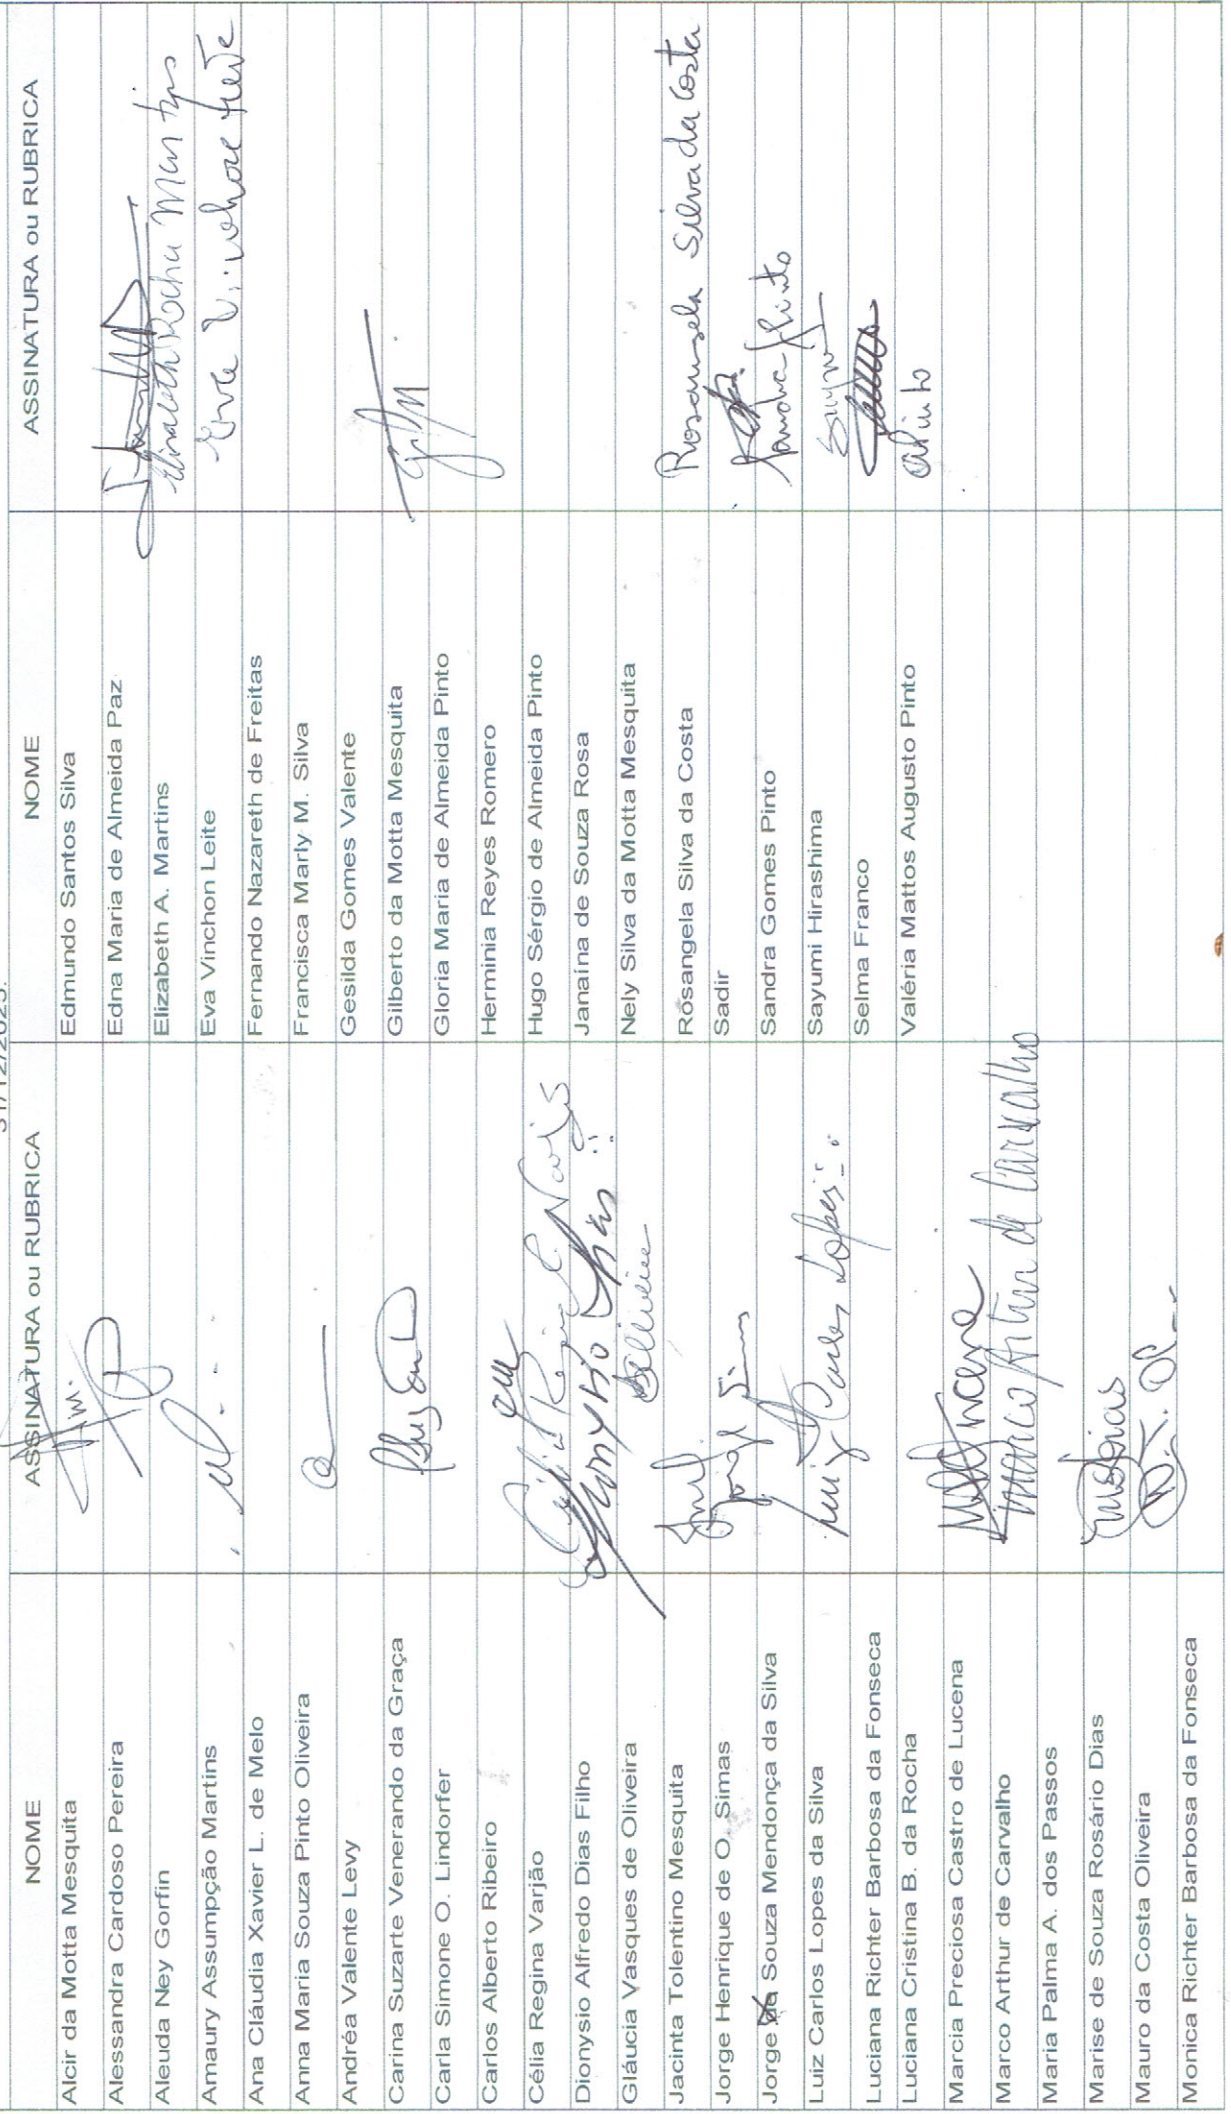 31/12/2023.
NOME ASSINATURA ou RUBRICA NOME ASSINATURA ou RUBRICA
Alcir da Motta Mesquita Edmundo Santos Silva
Alessandra Cardoso Pereira Edna Maria de Almeida Paz
Aleuda Ney Gorfin Elizabeth A. Martins Elizabeth Rocha Martins
Amaury Assumpção Martins Eva Vinchon Leite
Ana Cláudia Xavier L. de Melo Fernando Nazareth de Freitas
Anna Maria Souza Pinto Oliveira Francisca Marly M. Silva
Andréa Valente Levy Gesilda Gomes Valente
Carina Suzarte Venerando da Graça Gilberto da Motta Mesquita
Carla Simone O. Lindorfer Gloria Maria de Almeida Pinto
Carlos Alberto Ribeiro Herminia Reyes Romero
Célia Regina Varjão Célia Regina C. Varjão Hugo Sérgio de Almeida Pinto
Dionysio Alfredo Dias Filho Dionysio Dias Janaína de Souza Rosa
Gláucia Vasques de Oliveira Nely Silva da Motta Mesquita
Jacinta Tolentino Mesquita Rosangela Silva da Costa Rosangela Silva da Costa
Jorge Henrique de O. Simas Jorge Simas Sadir
Jorge de Souza Mendonça da Silva Sandra Gomes Pinto Sandra Pinto
Luiz Carlos Lopes da Silva Luiz Carlos Lopes Sayumi Hirashima
Luciana Richter Barbosa da Fonseca Selma Franco
Luciana Cristina B. da Rocha Valéria Mattos Augusto Pinto
Marcia Preciosa Castro de Lucena
Marco Arthur de Carvalho Marco Arthur de Carvalho
Maria Palma A. dos Passos
Marise de Souza Rosário Dias
Mauro da Costa Oliveira
Monica Richter Barbosa da Fonseca